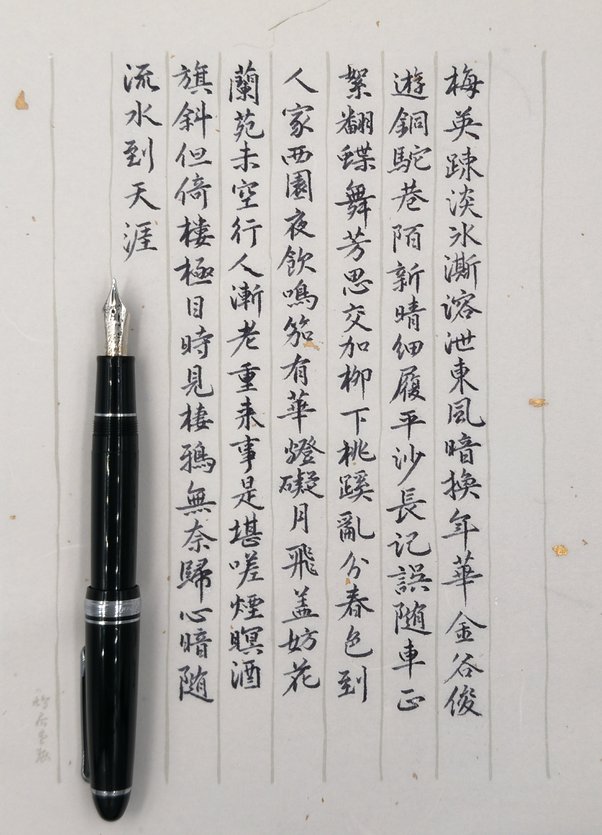 梅英踈淡氷澌溶泄東風暗換年華金谷俊
遊銅駝巷陌新晴細履平沙長记誤随車正
絮翻蝶舞芳思交加柳下桃蹊亂分春色到
人家西園夜飲鳴笳有華燈礙月飛盖妨花
蘭苑未空行人漸老重来事是堪嗟煙暝酒
旗斜但倚樓極目時見棲鴉無奈歸心暗随
流水到天涯